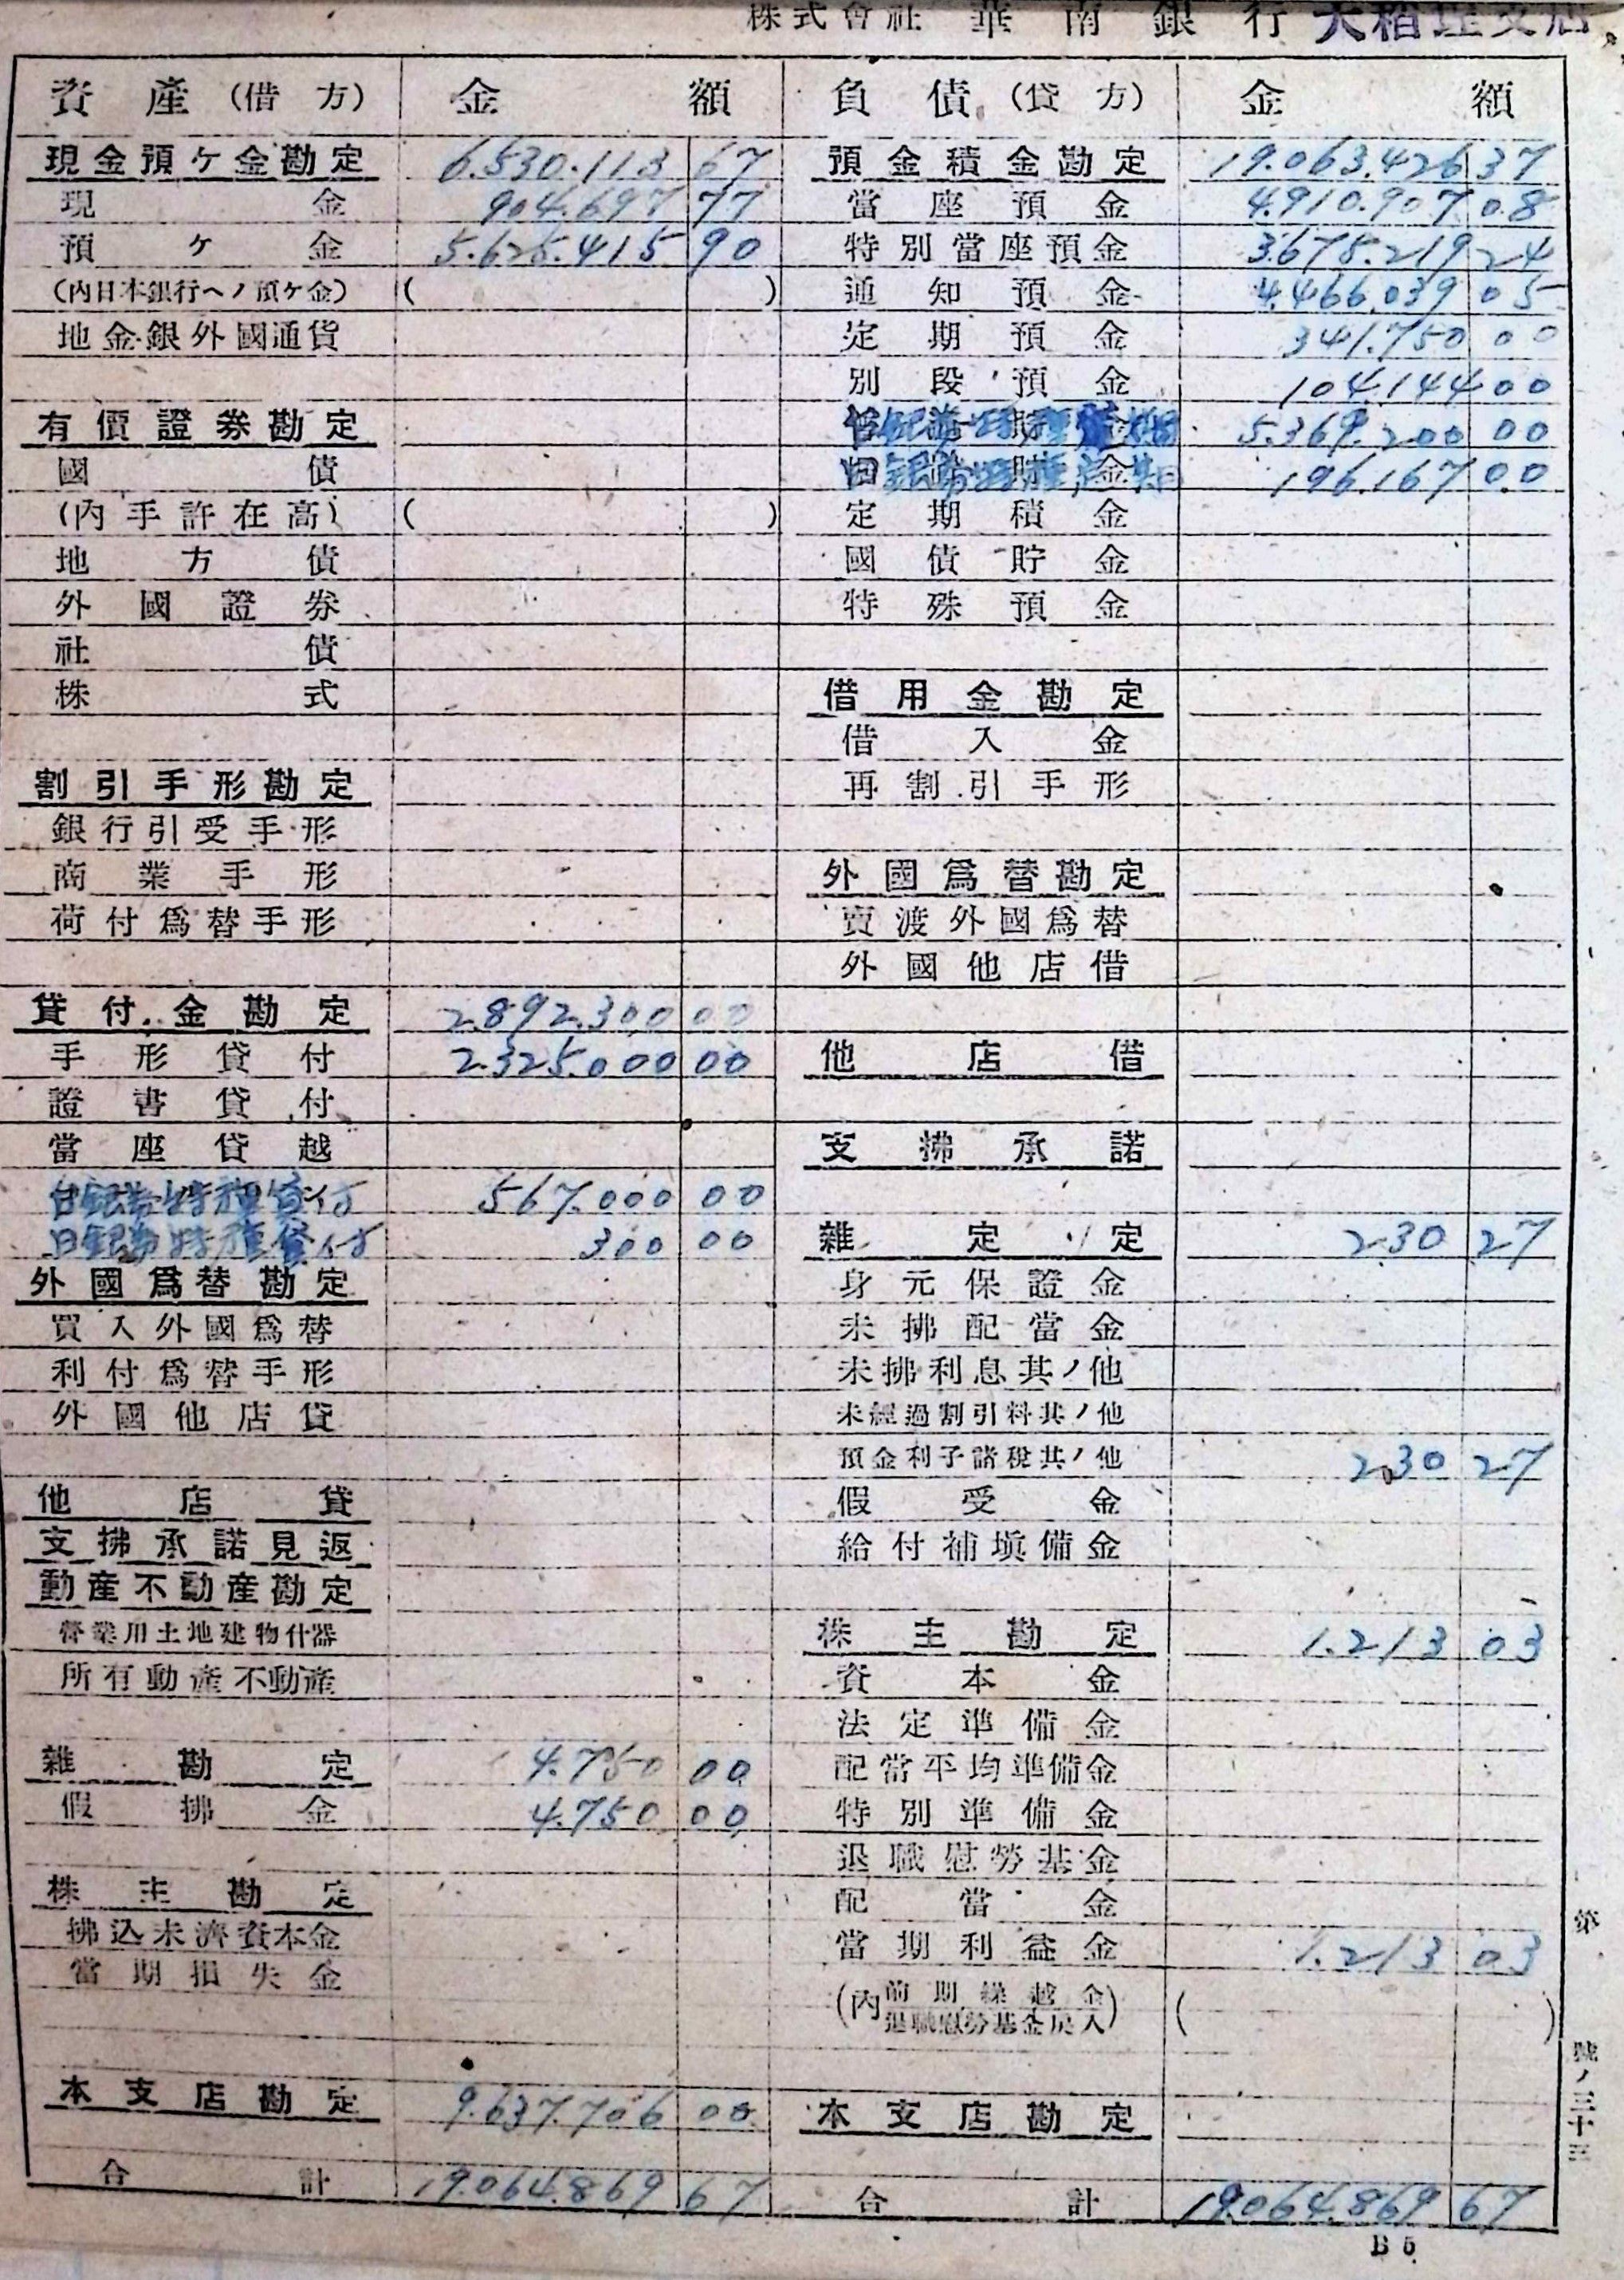 株式會社 華南銀行 大稻埕支店
資產（借方） 金額
現金預ケ金勘定 6.530.113 67
現金 904.697 77
預ケ金 5.625.415 90
（內日本銀行ヘノ預ケ金） ( )
地金銀外國通貨
有價證券勘定
國債
（內手許在高） ( )
地方債
外國證券
社債
株式
割引手形勘定
銀行引受手形
商業手形
荷付爲替手形
貸付金勘定 2.892.300 00
手形貸付 2.325.000 00
證書貸付
當座貸越
台銀券特種貸付 567.000 00
日銀券特種貸付 300 00
外國爲替勘定
買入外國爲替
利付爲替手形
外國他店貸
他店貸
支拂承諾見返
動産不動産勘定
營業用土地建物什器
所有動産不動産
雜勘定 4.750 00
假拂金 4.750 00
株主勘定
拂込未濟資本金
當期損失金
本支店勘定 9.637.706 00
合計 19.064.869 67
負債（貸方） 金額
預金積金勘定 19.063.426 37
當座預金 4.910.907 08
特別當座預金 3.675.219 24
通知預金 4.466.039 05
定期預金 341.750 00
別段預金 104.144 00
台銀券特種定期 5.369.200 00
日銀券特種定期 196.167 00
定期積金
國債貯金
特殊預金
借用金勘定
借入金
再割引手形
外國爲替勘定
賣渡外國爲替
外國他店借
他店借
支拂承諾
雜定定 230 27
身元保證金
未拂配當金
未拂利息其ノ他
未經過割引料其ノ他
預金利子諸稅其ノ他 230 27
假受金
給付補塡備金
株主勘定 1.213 03
資本金
法定準備金
配當平均準備金
特別準備金
退職慰勞基金
配當金
當期利益金 1.213 03
（內前期繰越金
退職慰勞基金戾入） ( )
本支店勘定
合計 19.064.869 67
第
號ノ三十三
B5